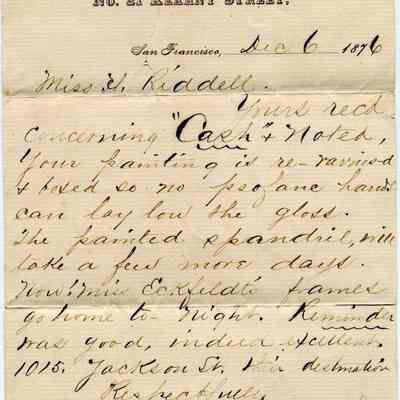 NO. 21 KEARNY STREET.
San Francisco, Dec 6 1876
Miss H. Riddell.
Yours recd
concerning "Cash" & Noted,
Your painting is re-varnisd
& boxed so no profane hands
can lay low the gloss.
The painted spandril, will
take a few more days.
Now! Miss Eckfeldts frames
go home to-Night. Reminder
was good, indeed excellent.
1015. Jackson St. their destination
Respectfully,